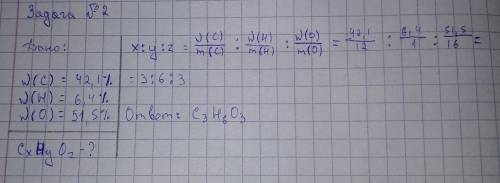 Задача №2
Дано:
W(C) = 42,1%
W(H) = 6,4%
W(O) = 51,5%
CxHyOz - ?
x:y:z = W(C)/m(C) : W(H)/m(H) : W(O)/m(O) = 42,1/12 : 6,4/1 : 51,5/16 =
= 3:6:3
Ответ: C3H6O3